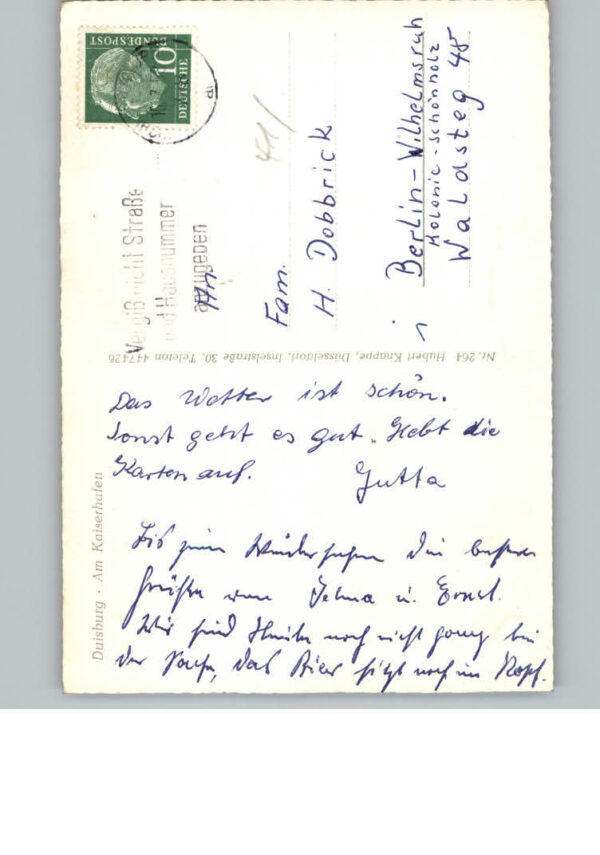 DEUTSCHE
BUNDESPOST
10
Vergiß nicht Straße
und Hausnummer
anzugeben
41/
An
Fam.
H. Dobbrick
Berlin-Wilhelmsruh
Kolonie-Schönholz
Waldsteg 48
Nr. 264 Hubert Knappe, Düsseldorf, Inselstraße 30, Telefon 447426
Duisburg · Am Kaiserhafen
Das Wetter ist schön.
Sonst geht es gut. Hebt die
Karten auf. Jutta
Bis zum Wiedersehen die besten
Grüße von u. Ernst.
Wir sind Heute noch nicht ganz bei
der Sache, das Bier sitzt noch im Kopf.